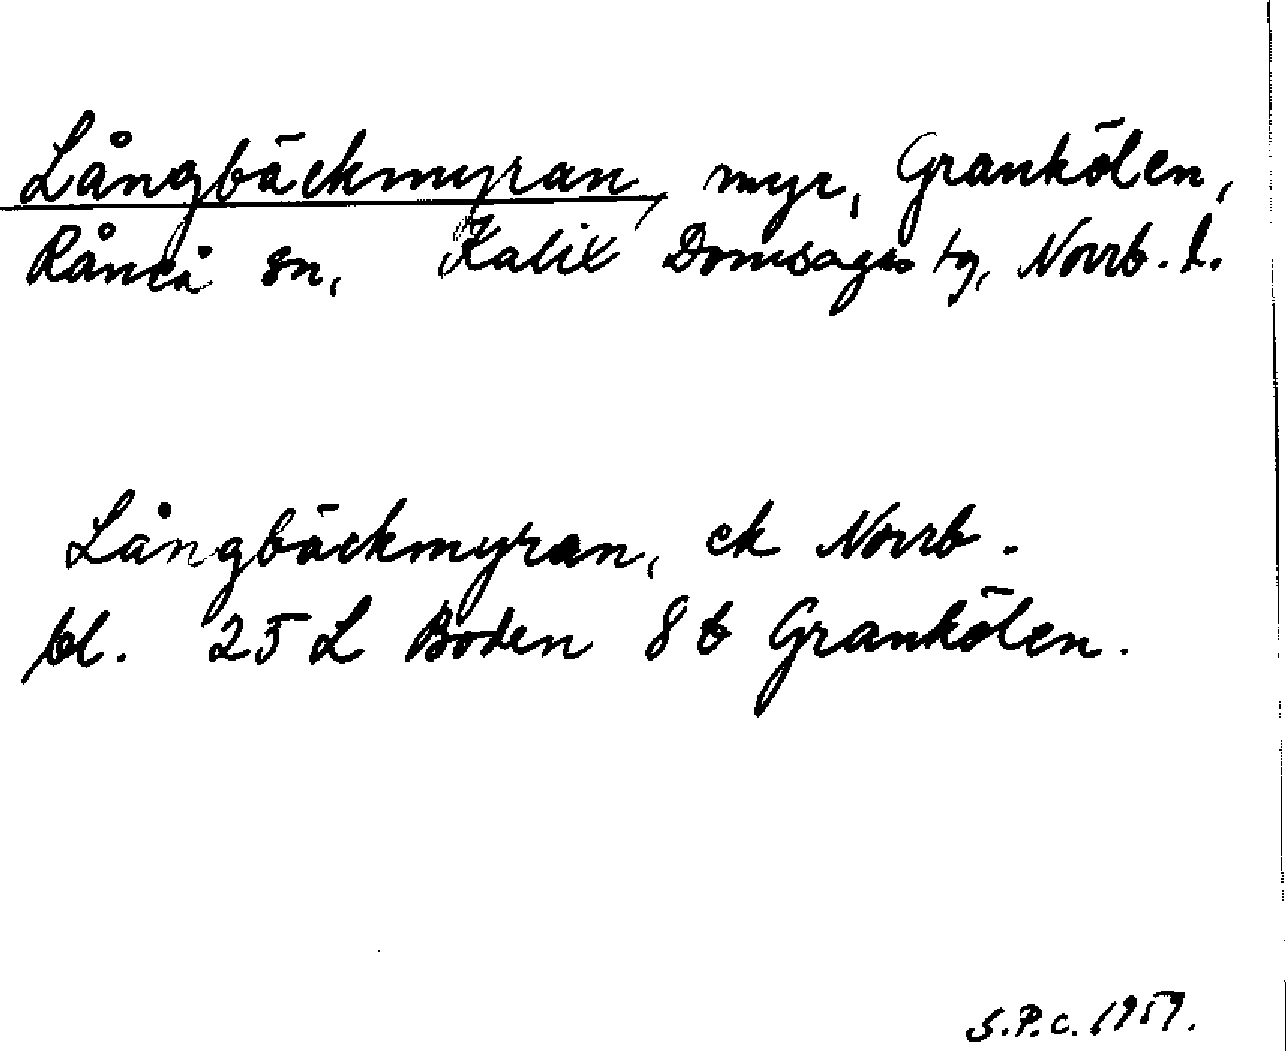 Långbäckmyran, myr, Grankölen,
Råneå sn, Kalix Domsagas tg, Norrb. l.
Långbäckmyran, ek Norrb.
bl. 25 L Boden 8 b Grankölen.
S.P.C. 1959.